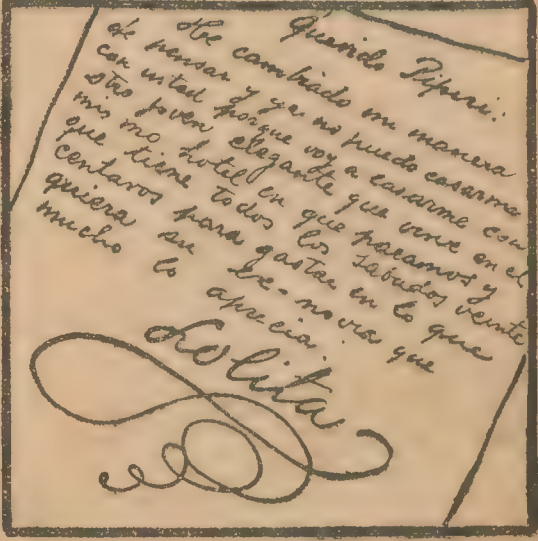 Querido Pipiri:
He cambiado mi manera
de pensar y ya no puedo casarme
con usted porque voy a casarme con
otro joven elegante que vive en el
mismo hotel en que paramos y
que tiene todos los sábados veinte
centavos para gastar en lo que
quiera su ex-novia que
mucho lo aprecia.
Lolita